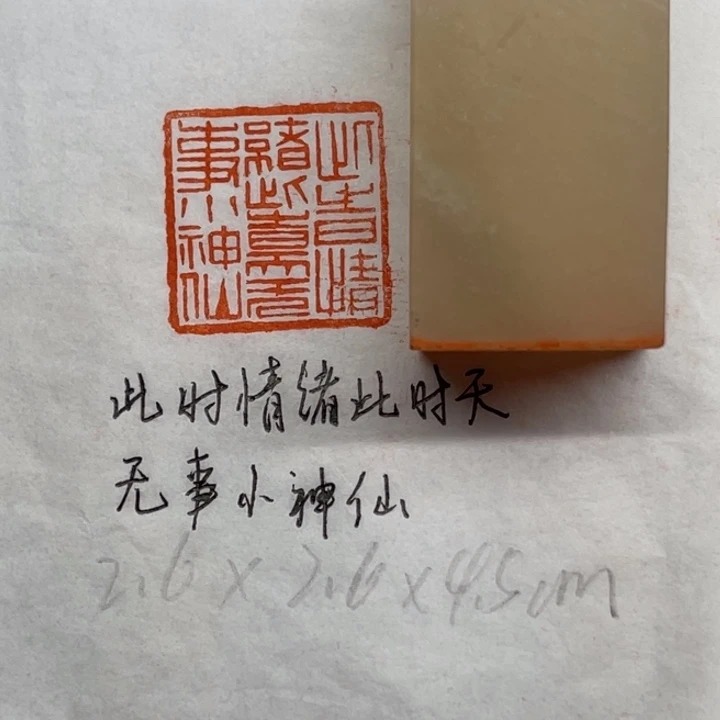 此时情绪此时天
无事小神仙
此时情
绪此时天无
事小神仙
2.6×2.6×4.5cm